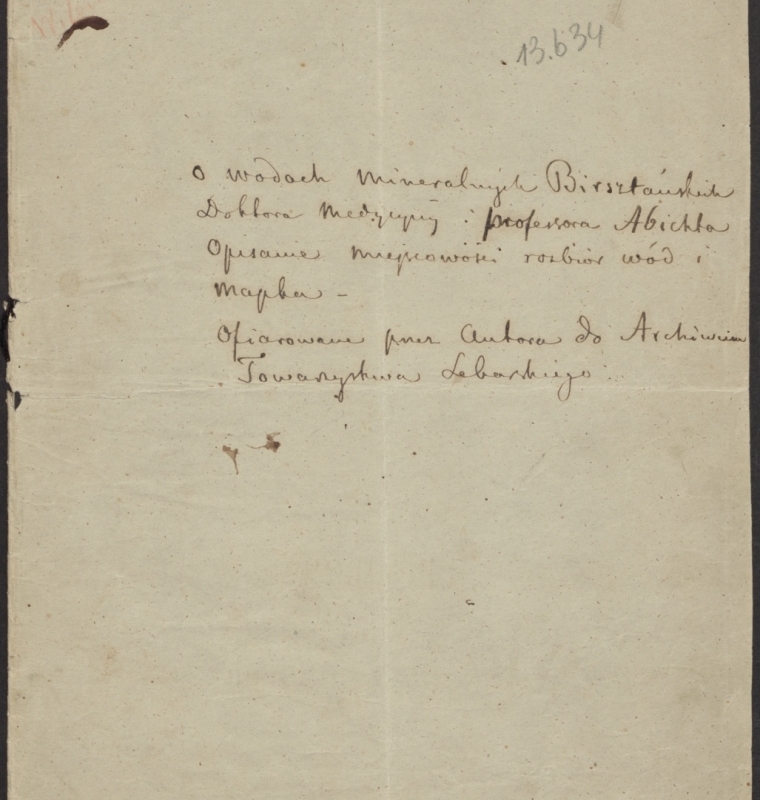 13.634
O wodach mineralnych Birsztańskich
Doktora Medycyny i professora Abichta
Opisanie miejscowości rozbior wód i
mapka –
Ofiarowane przez Autora do Archiwum
Towarzystwa Lekarskiego.